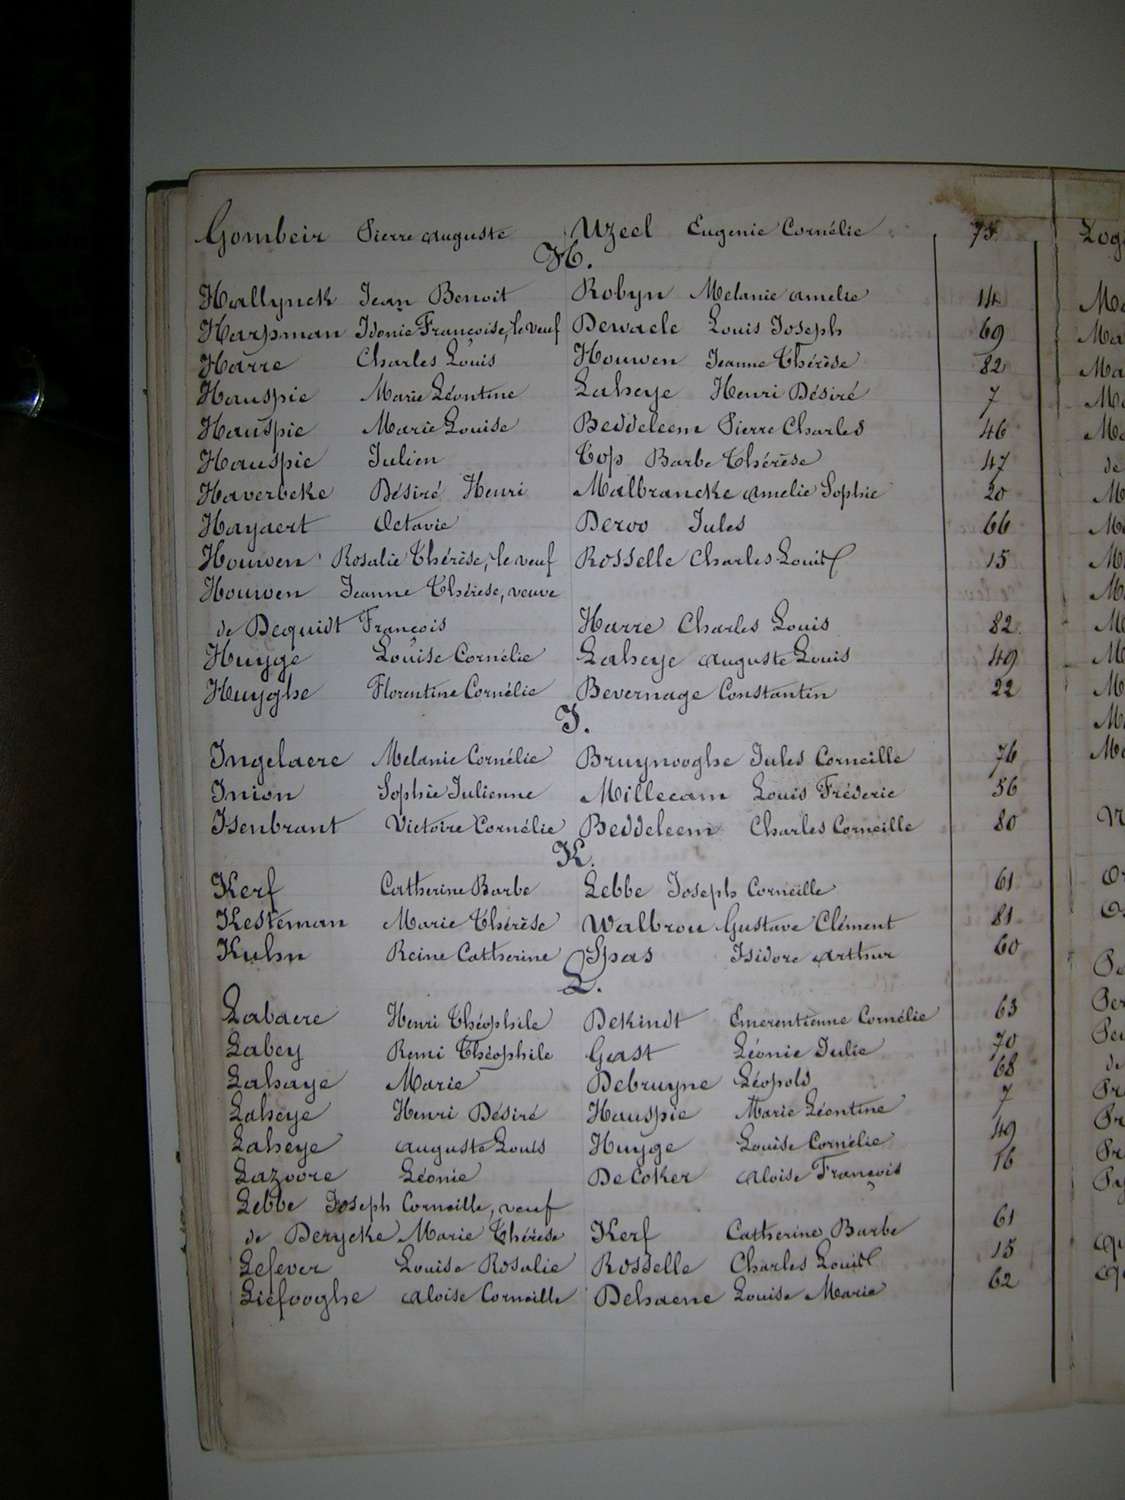 Gombeir Pierre Auguste Uzeel Eugenie Cornélie 75
H.
Hallynck Jean Benoit Robyn Melanie Amelie 14
Harpman Idonie Françoise, le veuf Dewaele Louis Joseph 69
Harre Charles Louis Houwen Jeanne Thérèse 82
Hauspie Marie Léontine Laheye Henri Désiré 7
Hauspie Marie Louise Beddeleem Pierre Charles 46
Hauspie Julien Top Barbe Thérèse 47
Haverbeke Désiré Henri Malbrancke Amelie Sophie 20
Hayaert Octavie Deroo Jules 66
Houwen Rosalie Thérèse, le veuf Rosselle Charles Louis 15
Houwen Jeanne Thérèse, veuve
de Dequidt François Harre Charles Louis 82
Huyge Louise Cornélie Laheye Auguste Louis 49
Huyghe Florentine Cornélie Bevernage Constantin 22
I.
Ingelaere Melanie Cornélie Bruynooghe Jules Corneille 76
Inion Sophie Julienne Millecam Louis Fréderic 56
Isenbrant Victoire Cornélie Beddeleem Charles Corneille 80
K.
Kerf Catherine Barbe Lebbe Joseph Corneille 61
Kesteman Marie Thérèse Walbrou Gustave Clément 81
Kuhn Reine Catherine Spas Isidore Arthur 60
L.
Labaere Henri Théophile Dekindt Emerentienne Cornélie 63
Labey Remi Théophile Gast Léonie Julie 70
Lahaye Marie Debruyne Léopold 68
Laheye Henri Désiré Hauspie Marie Léontine 7
Laheye Auguste Louis Huyge Louise Cornélie 49
Lazoore Léonie DeCoker Aloise François 16
Lebbe Joseph Corneille, veuf
de Derycke Marie Thérèse Kerf Catherine Barbe 61
Lefever Louise Rosalie Rosselle Charles Louis 15
Liefooghe Aloise Corneille Dehaene Louise Marie 62